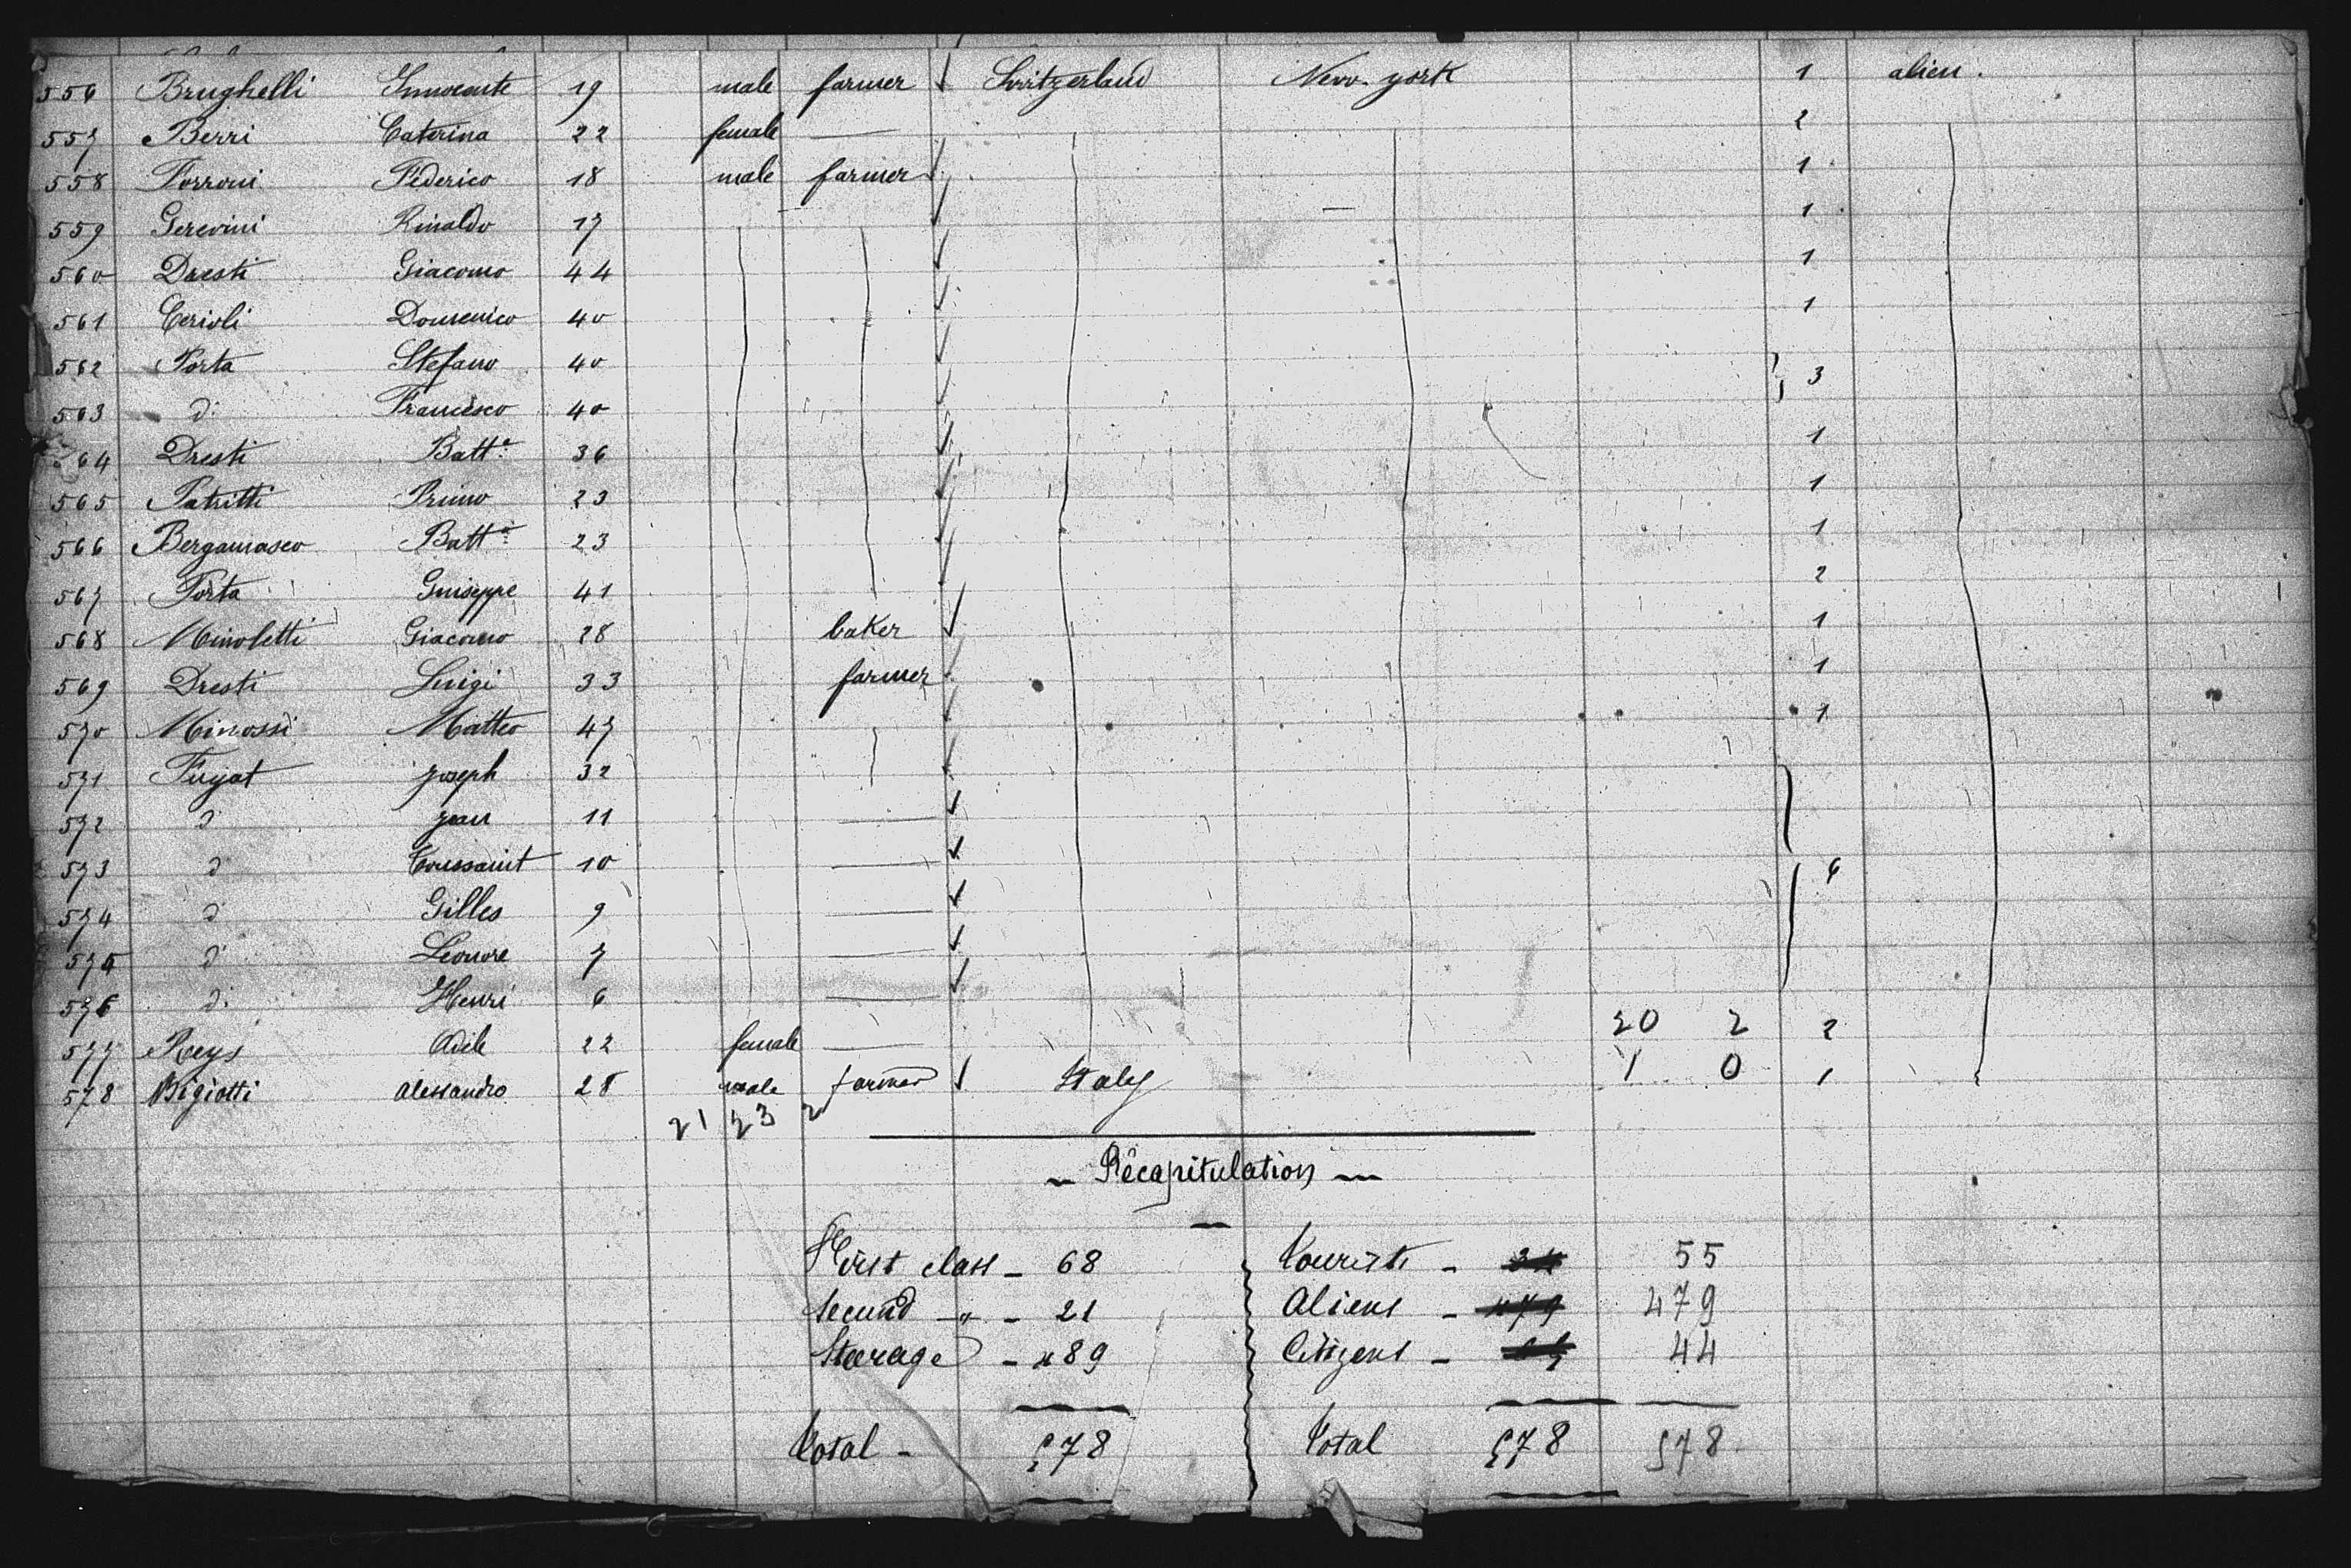 556 Brughelli Innocente 19 male farmer Switzerland New-york 1 alien.
557 Berri Caterina 22 female — 2
558 Forroni Federico 18 male farmer 1
559 Gerevini Rinaldo 17 1
560 Dresti Giacomo 44 1
561 Cerioli Domenico 40 1
562 Porta Stefano 40
563 d: Francesco 40 3
564 Dresti Batta 36 1
565 Patritti Primo 23 1
566 Bergamasco Batta 23 1
567 Porta Guiseppe 41 2
568 Minoletti Giacomo 28 baker 1
569 Dresti Luigi 33 farmer 1
570 Minossi Matteo 47 1
571 Fuyat Joseph 32
572 d jean 11 —
573 d Toussaint 10 — 6
574 d Gilles 9 —
575 d Léonore 7 —
576 d: Henri 6 —
577 Reys Adile 22 female — 20 2 2
578 Bigiotti Alessandro 28 male farmer Italy 1 0 1
21 23 2
— Récapitulation —
First class - 68 Tourists - 55
Second -"- - 21 Aliens - 479 479
Steerage - 489 Citizens - 44
Total - 578 Total 578 578